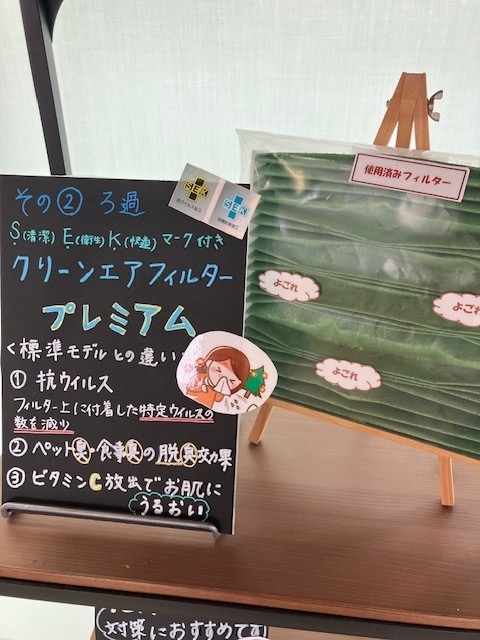 その② ろ過
S(清潔) E(衛生) K(快適) マーク付き
クリーンエアフィルター
プレミアム
<標準モデルとの違い
① 抗ウイルス
フィルター上に付着した特定ウイルスの
数を減少
② ペット臭・食事臭の脱臭効果
③ ビタミンC放出でお肌に
うるおい
SEK
抗ウイルス加工
SEK
使用済みフィルター
よごれ
よごれ
よごれ
対策におすすめです